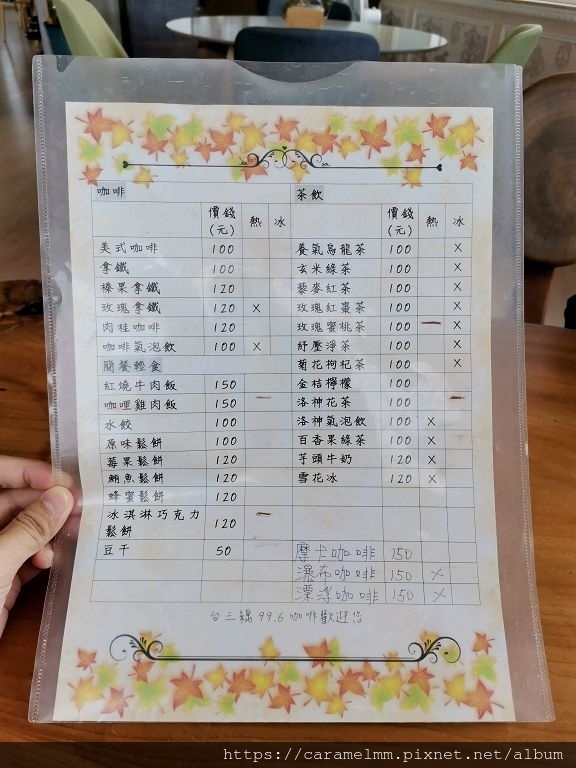 咖啡
價錢(元) 熱 冰
美式咖啡 100
拿鐵 100
榛果拿鐵 120
玫瑰拿鐵 120 X
肉桂咖啡 120
咖啡氣泡飲 100 X
簡餐輕食
紅燒牛肉飯 150
咖哩雞肉飯 150
水餃 100
原味鬆餅 100
莓果鬆餅 120
鮪魚鬆餅 120
蜂蜜鬆餅 120
冰淇淋巧克力鬆餅 120
豆干 50
茶飲
價錢(元) 熱 冰
養氣烏龍茶 100 X
玄米綠茶 100 X
藜麥紅茶 100 X
玫瑰紅棗茶 100 X
玫瑰蜜桃茶 100 X
紓壓淨茶 100 X
菊花枸杞茶 100 X
金桔檸檬 100
洛神花茶 100
洛神氣泡飲 100 X
百香果綠茶 100 X
芋頭牛奶 120 X
雪花冰 120 X
摩卡咖啡 150
瀑布咖啡 150 X
漂浮咖啡 150 X
台三線99.6咖啡歡迎您
https://caramelmm.pixnet.net/album